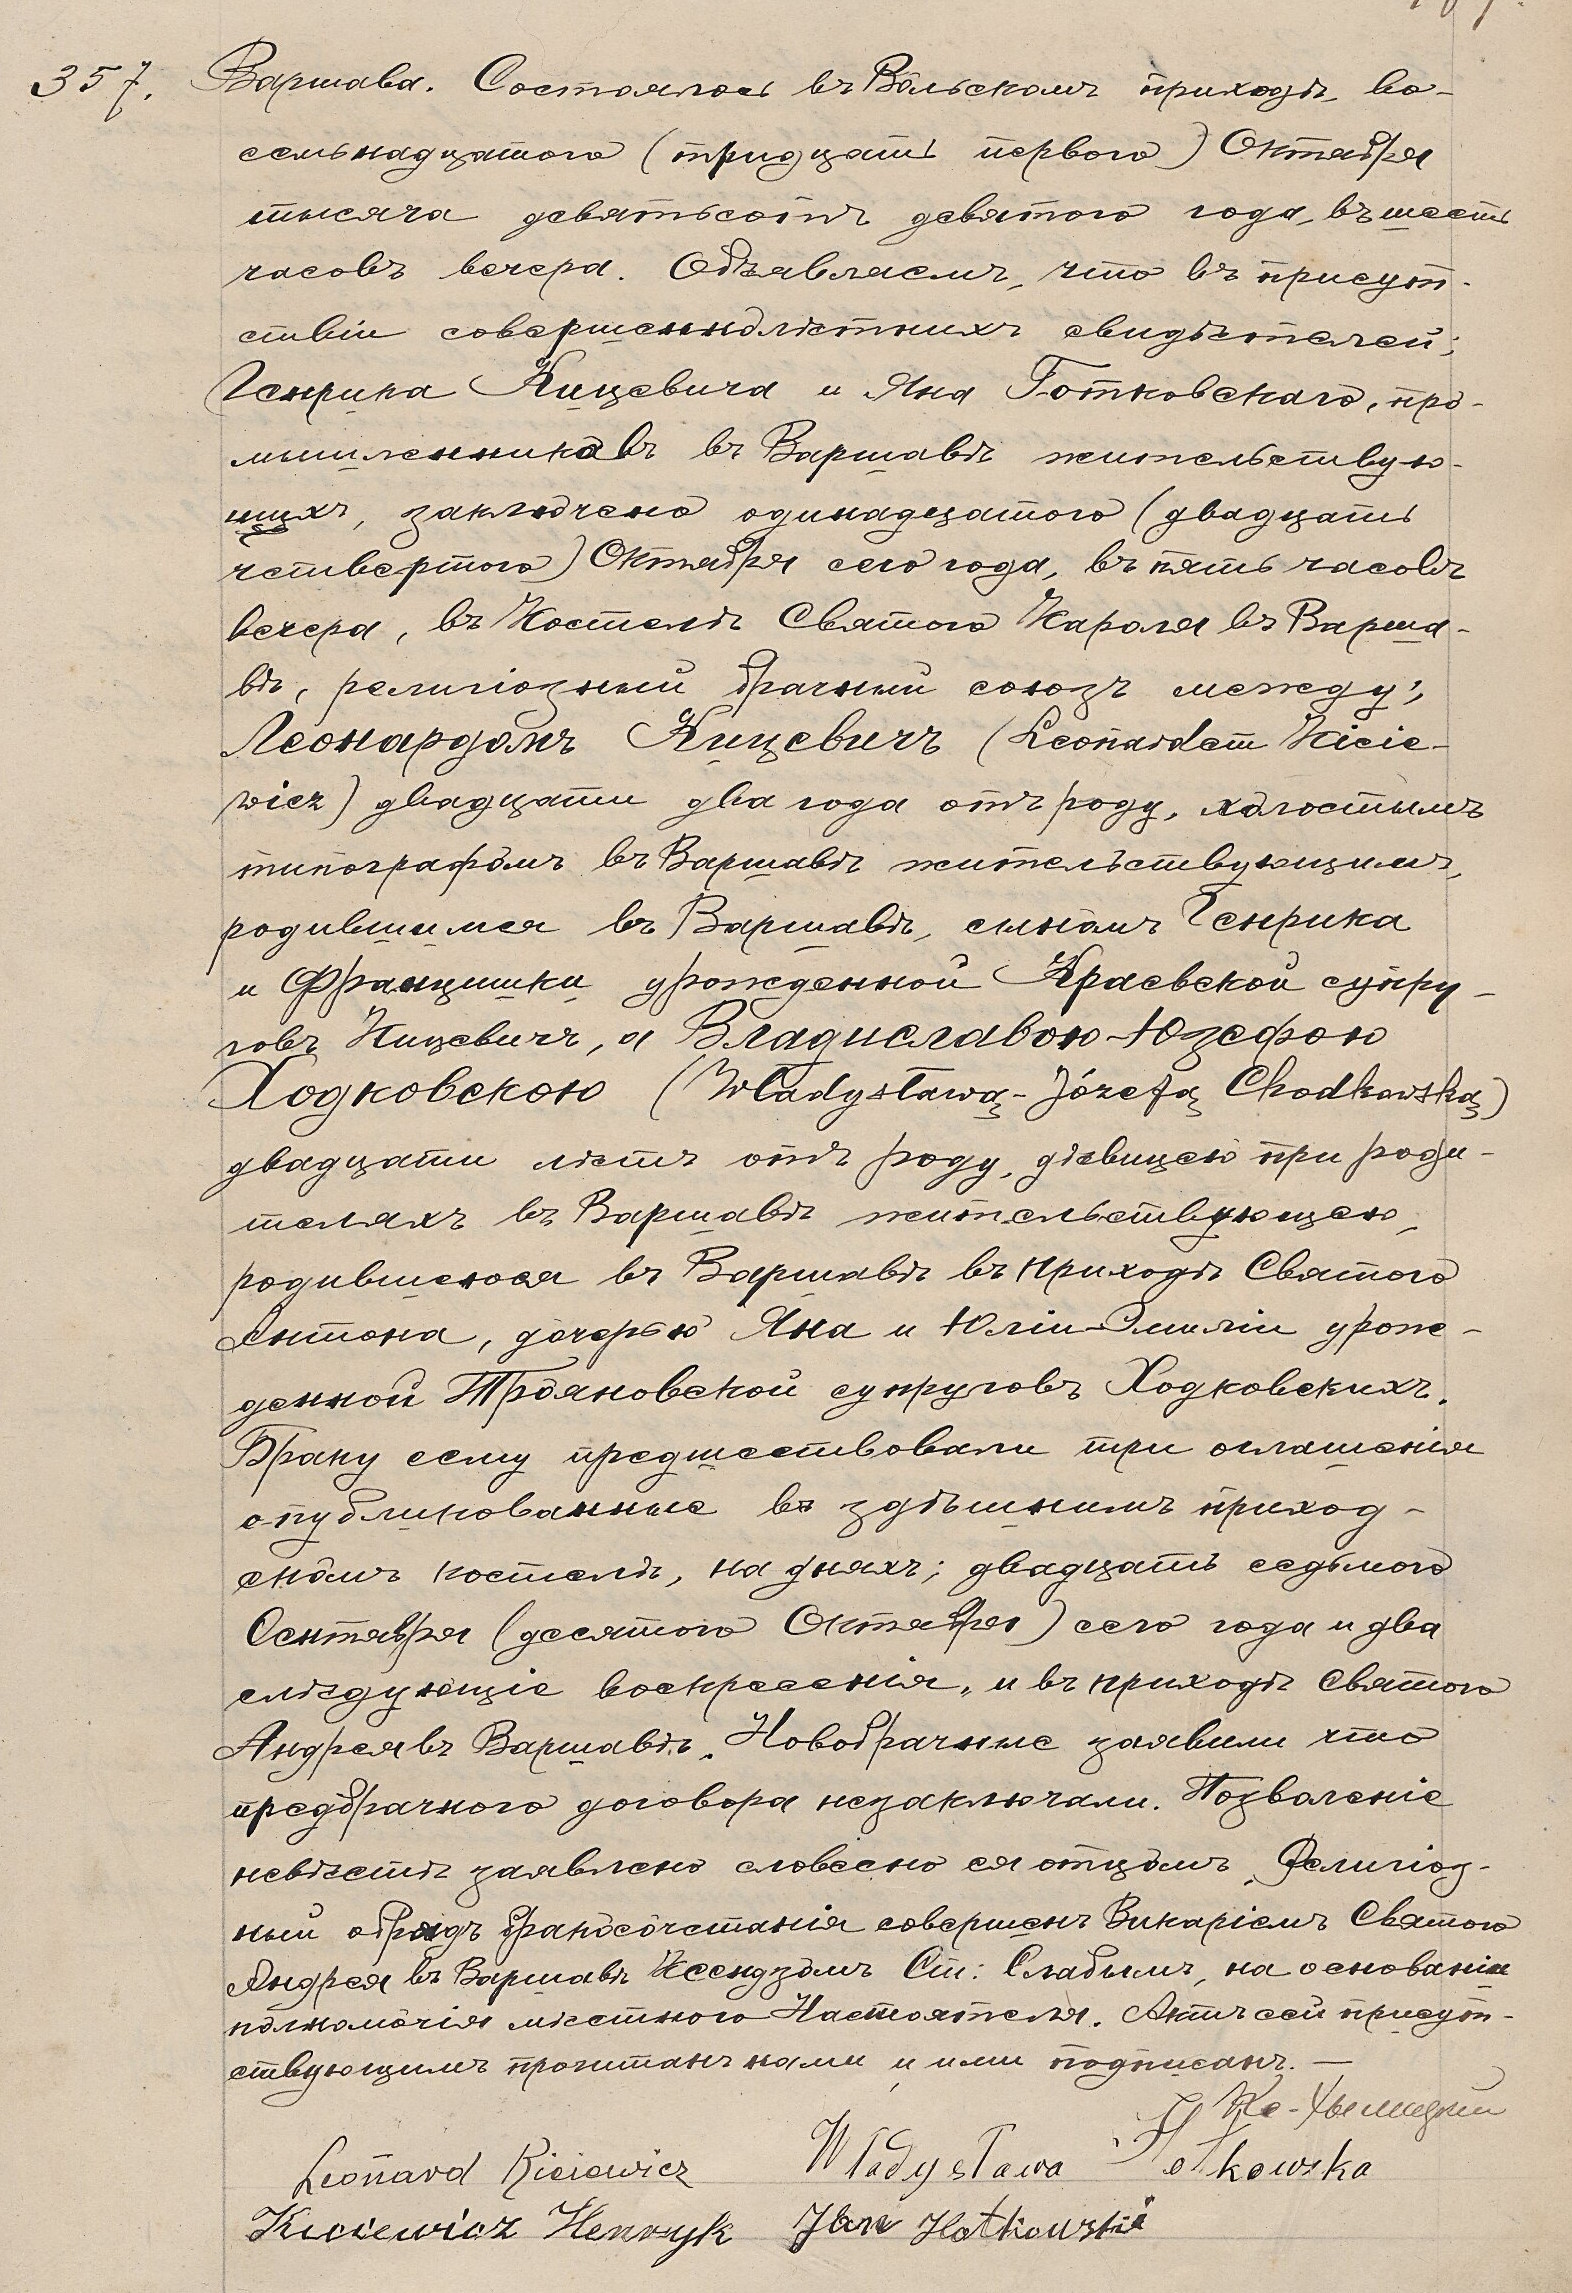 357. Варшава. Состоялось въ Вольскомъ приходѣ, во-
семьнадцатого (тридцать первого) Октября
тысяча девятьсотъ девятого года, въ шесть
часовъ вечера. Объявляемъ, что въ присут-
ствіи совершеннолѣтнихъ свидѣтелей;
Генрика Кицевича и Яна Готковскаго, про-
мышленниковъ въ Варшавѣ жительствую-
щихъ, заключено одинадцатого (двадцать
четвертого) Октября сего года, въ пять часовъ
вечера, въ Костелѣ Святого Кароля въ Варша-
вѣ, религіозный брачный союзъ между;
Леонардомъ Кицевичъ (Leonardem Kicie-
wicz) двадцати два года отъ роду, холостымъ
типографомъ въ Варшавѣ жительствующимъ,
родившимся въ Варшавѣ, сыномъ Генрика
и Францишки урожденной Краевской супру-
говъ Кицевичъ, а Владиславою-Юзефою
Ходковскою (Władysławą-Józefą Chodkowską)
двадцати лѣтъ отъ роду, дѣвицею при роди-
теляхъ въ Варшавѣ жительствующею,
родившеюся въ Варшавѣ въ приходѣ Святого
Антона, дочерью Яна и Юліи-Эмиліи урож-
денной Трояновской супруговъ Ходковскихъ.
Браку сему предшествовали три оглашенія
опубликованные въ здѣшнимъ приход-
скомъ костелѣ, на дняхъ; двадцать седьмого
Сентября (десятого Октября) сего года и два
слѣдующіе воскресенія, и въ приходѣ Святого
Андрея въ Варшавѣ. Новобрачные заявили что
предбрачного договора незаключали. Позволеніе
невѣстѣ заявлено словесно ея отцомъ. Религіоз-
ный обрядъ бракосочетанія совершенъ Викаріемъ Святого
Андрея въ Варшавѣ Ксендзомъ Ст: Слабымъ, на основаніи
полномочія мѣстного Настоятеля. Актъ сей присут-
ствующимъ прочитанъ нами и ими подписанъ. —
Leonard Kiciewicz Władysława Hotkowska
Kiciewicz Henryk Jan Hotkowski